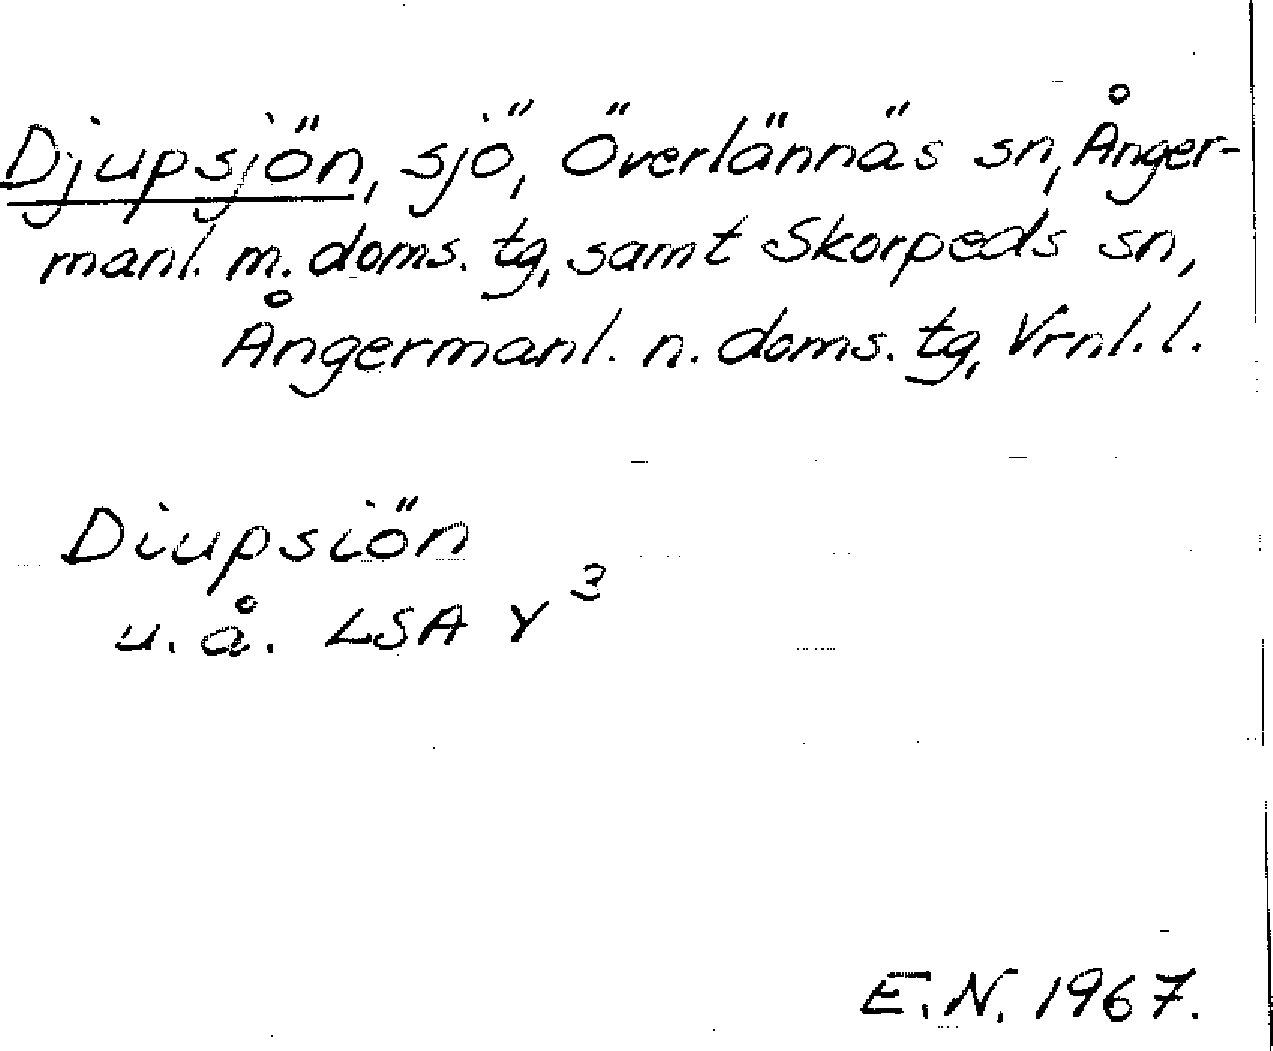 Djupsjön, sjö, Överlännäs sn, Ånger-
manl. m. doms. tg, samt Skorpeds sn,
Ångermanl. n. doms. tg, Vrnl. l.
Diupsiön
u. å. LSA Y 3
E.N. 1967.